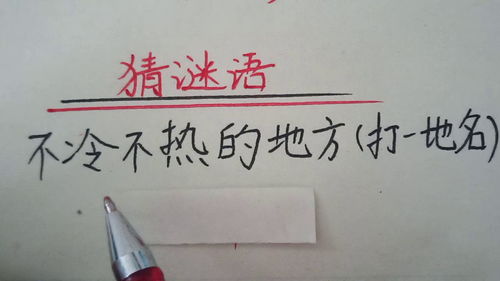 猜谜语
不冷不热的地方(打一地名)